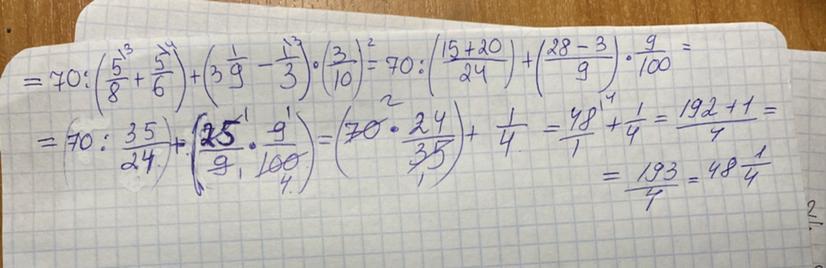 = 70 : (5/8 + 5/6) + (3 1/9 − 1/3) · (3/10)² = 70 : ((15+20)/24) + ((28−3)/9) · 9/100 =
= (70 : 35/24) + (25/9 · 9/100) = (70 · 24/35) + 1/4 = 48/1 + 1/4 = (192+1)/4 =
= 193/4 = 48 1/4